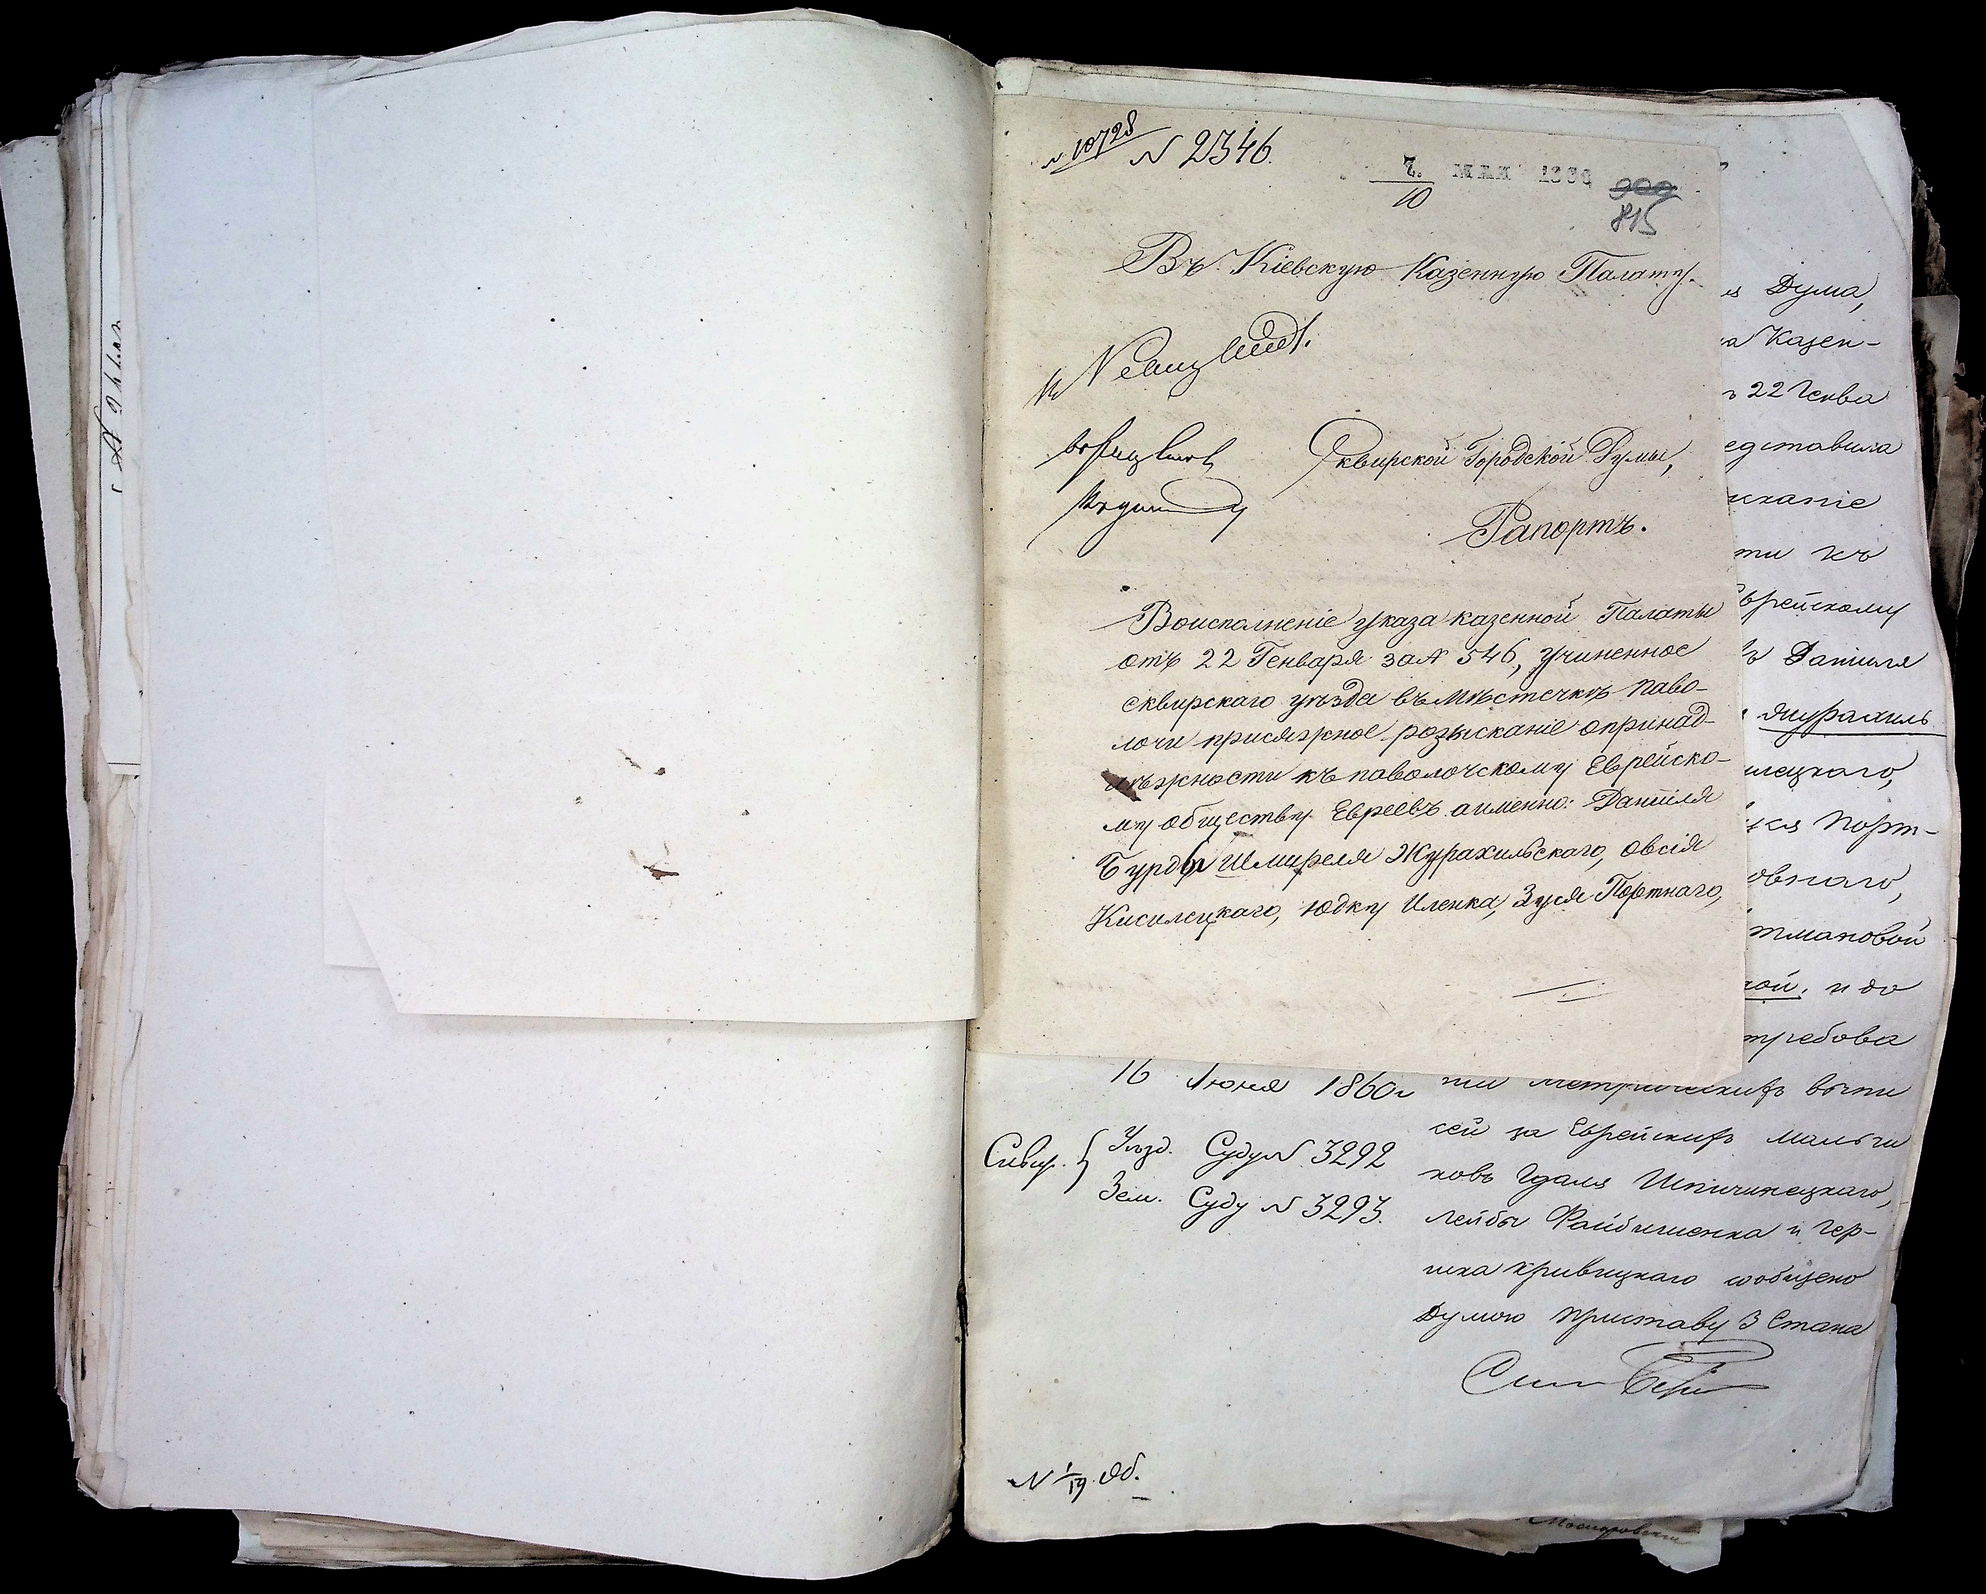 № 10728 № 2346.
7. МАЯ 1860
10
900
815
Въ Кіевскую Казенную Палату.
Сквирской Городской Думы,
Рапортъ.
Воисполненіе указа казенной Палаты
отъ 22 Генваря за № 546, учиненное
сквирскаго уѣзда въ мѣстечкѣ паво-
лочи присяжное розысканіе опринад-
лѣжности къ паволочскому Еврейско-
му обществу Евреевъ аименно: Даніиля
Бурды Шмиреля Журахильскаго, овсія
Кисилецкаго, юдку Иленка, Зуся Портнаго,
Дума,
Казен-
22 Генва
едставила
сканіе
ти къ
Еврейскому
Даніиля
журахиль
илецкаго,
Порт-
овнаго,
тмановой
ной, и до
требова
16 Іюня 1860 г
ніи метрическихъ выпи
сей за Еврейскихъ мальчи
ковъ Гдаля Шпичинецкаго,
Лейбы Файбишенка и Гер-
шка Кривицкаго сообщено
Думою Приставу 3 Стана
Сквир. { Уѣзд. Суду № 3292
Зем. Суду № 3293.
№ 1/19 Об.